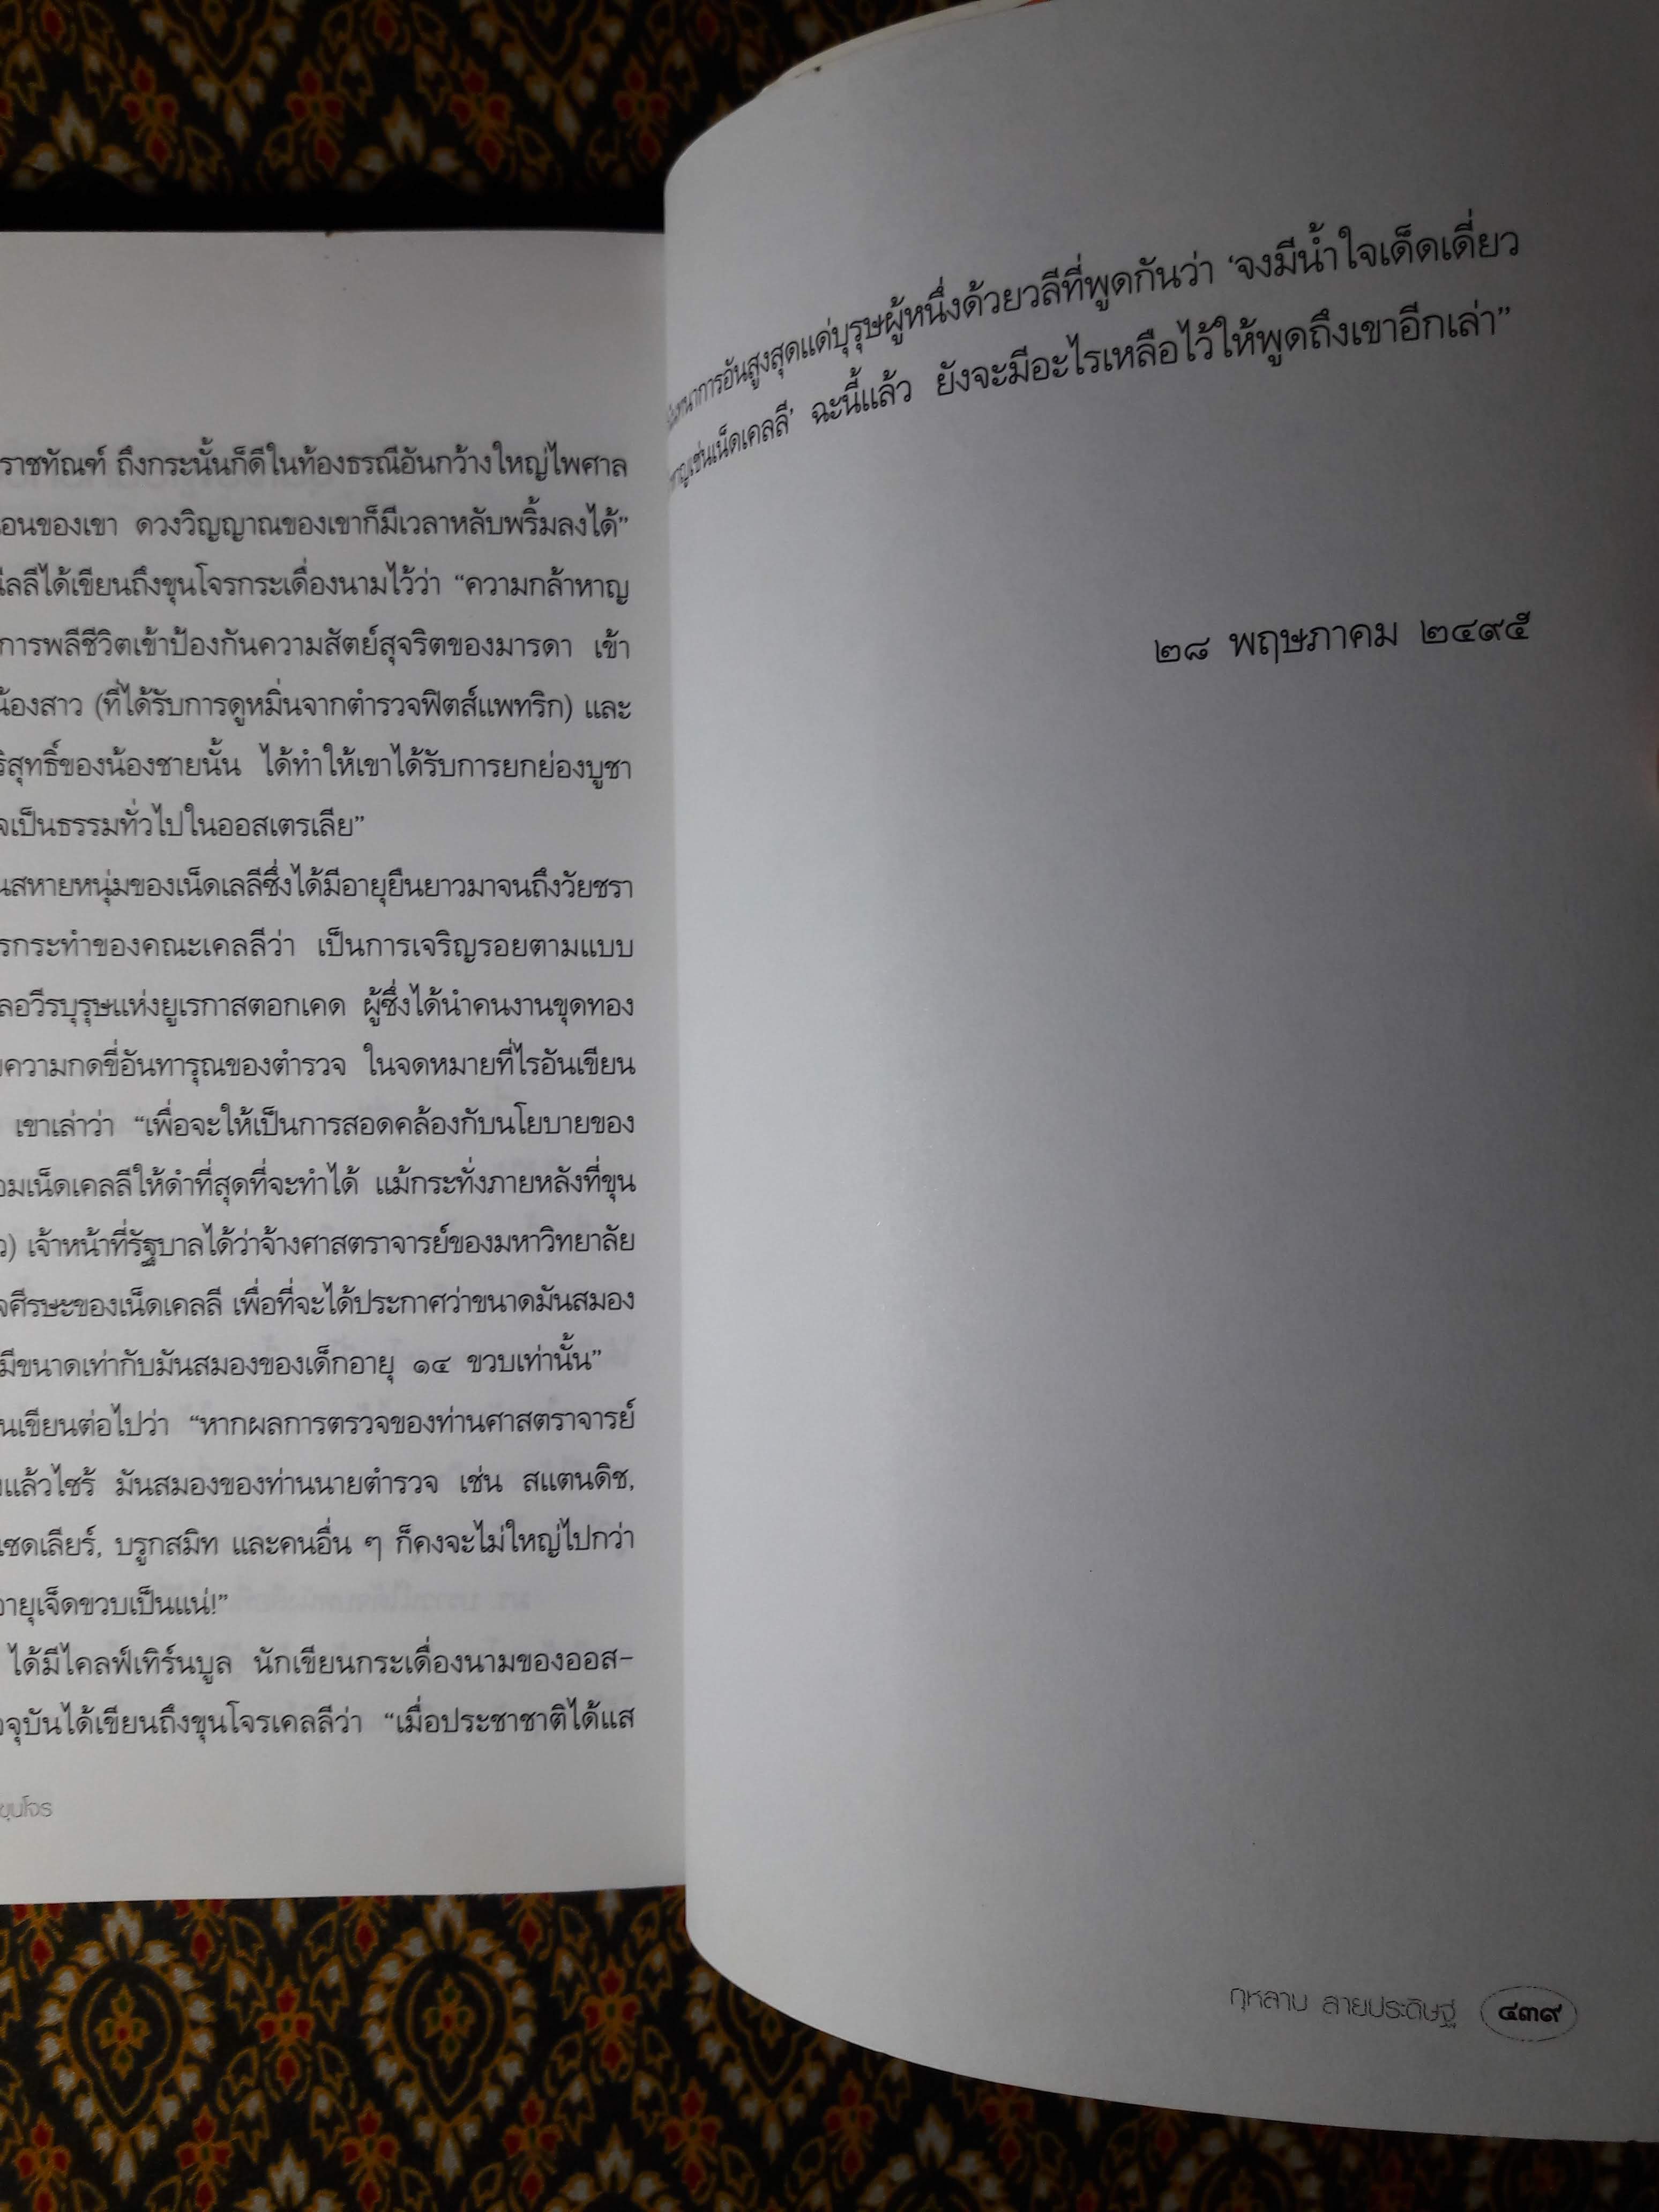 ราชทัณฑ์ ถึงกระนั้นก็ดีในท้องธรณีอันกว้างใหญ่ไพศาล
อนของเขา ดวงวิญญาณของเขาก็มีเวลาหลับพริ้มลงได้”
ลลีได้เขียนถึงขุนโจรกระเดื่องนามไว้ว่า “ความกล้าหาญ
การพลีชีวิตเข้าป้องกันความสัตย์สุจริตของมารดา เข้า
น้องสาว (ที่ได้รับการดูหมิ่นจากตำรวจฟิตส์แพทริก) และ
ริสุทธิ์ของน้องชายนั้น ได้ทำให้เขาได้รับการยกย่องบูชา
จเป็นธรรมทั่วไปในออสเตรเลีย”
นสหายหนุ่มของเน็ดเลลีซึ่งได้มีอายุยืนยาวมาจนถึงวัยชรา
รกระทำของคณะเคลลีว่า เป็นการเจริญรอยตามแบบ
ลอวีรบุรุษแห่งยูเรกาสตอกเคด ผู้ซึ่งได้นำคนงานขุดทอง
ความกดขี่อันทารุณของตำรวจ ในจดหมายที่ไรอันเขียน
เขาเล่าว่า “เพื่อจะให้เป็นการสอดคล้องกับนโยบายของ
อมเน็ดเคลลีให้ดำที่สุดที่จะทำได้ แม้กระทั่งภายหลังที่ขุน
ว) เจ้าหน้าที่รัฐบาลได้ว่าจ้างศาสตราจารย์ของมหาวิทยาลัย
จศีรษะของเน็ดเคลลี เพื่อที่จะได้ประกาศว่าขนาดมันสมอง
มีขนาดเท่ากับมันสมองของเด็กอายุ ๑๔ ขวบเท่านั้น”
นเขียนต่อไปว่า “หากผลการตรวจของท่านศาสตราจารย์
แล้วไซร้ มันสมองของท่านนายตำรวจ เช่น สแตนดิช,
เซดเลียร์, บรูกสมิท และคนอื่น ๆ ก็คงจะไม่ใหญ่ไปกว่า
อายุเจ็ดขวบเป็นแน่!”
ได้มีไคลฟ์เทิร์นบูล นักเขียนกระเดื่องนามของออส-
จจุบันได้เขียนถึงขุนโจรเคลลีว่า “เมื่อประชาชาติได้แส
ขุนโจร
นาการอันสูงสุดแด่บุรุษผู้หนึ่งด้วยวลีที่พูดกันว่า ‘จงมีน้ำใจเด็ดเดี่ยว
หาญเช่นเน็ดเคลลี’ ฉะนี้แล้ว ยังจะมีอะไรเหลือไว้ให้พูดถึงเขาอีกเล่า”
๒๘ พฤษภาคม ๒๔๙๕
กุหลาบ สายประดิษฐ์ ๔๓๙